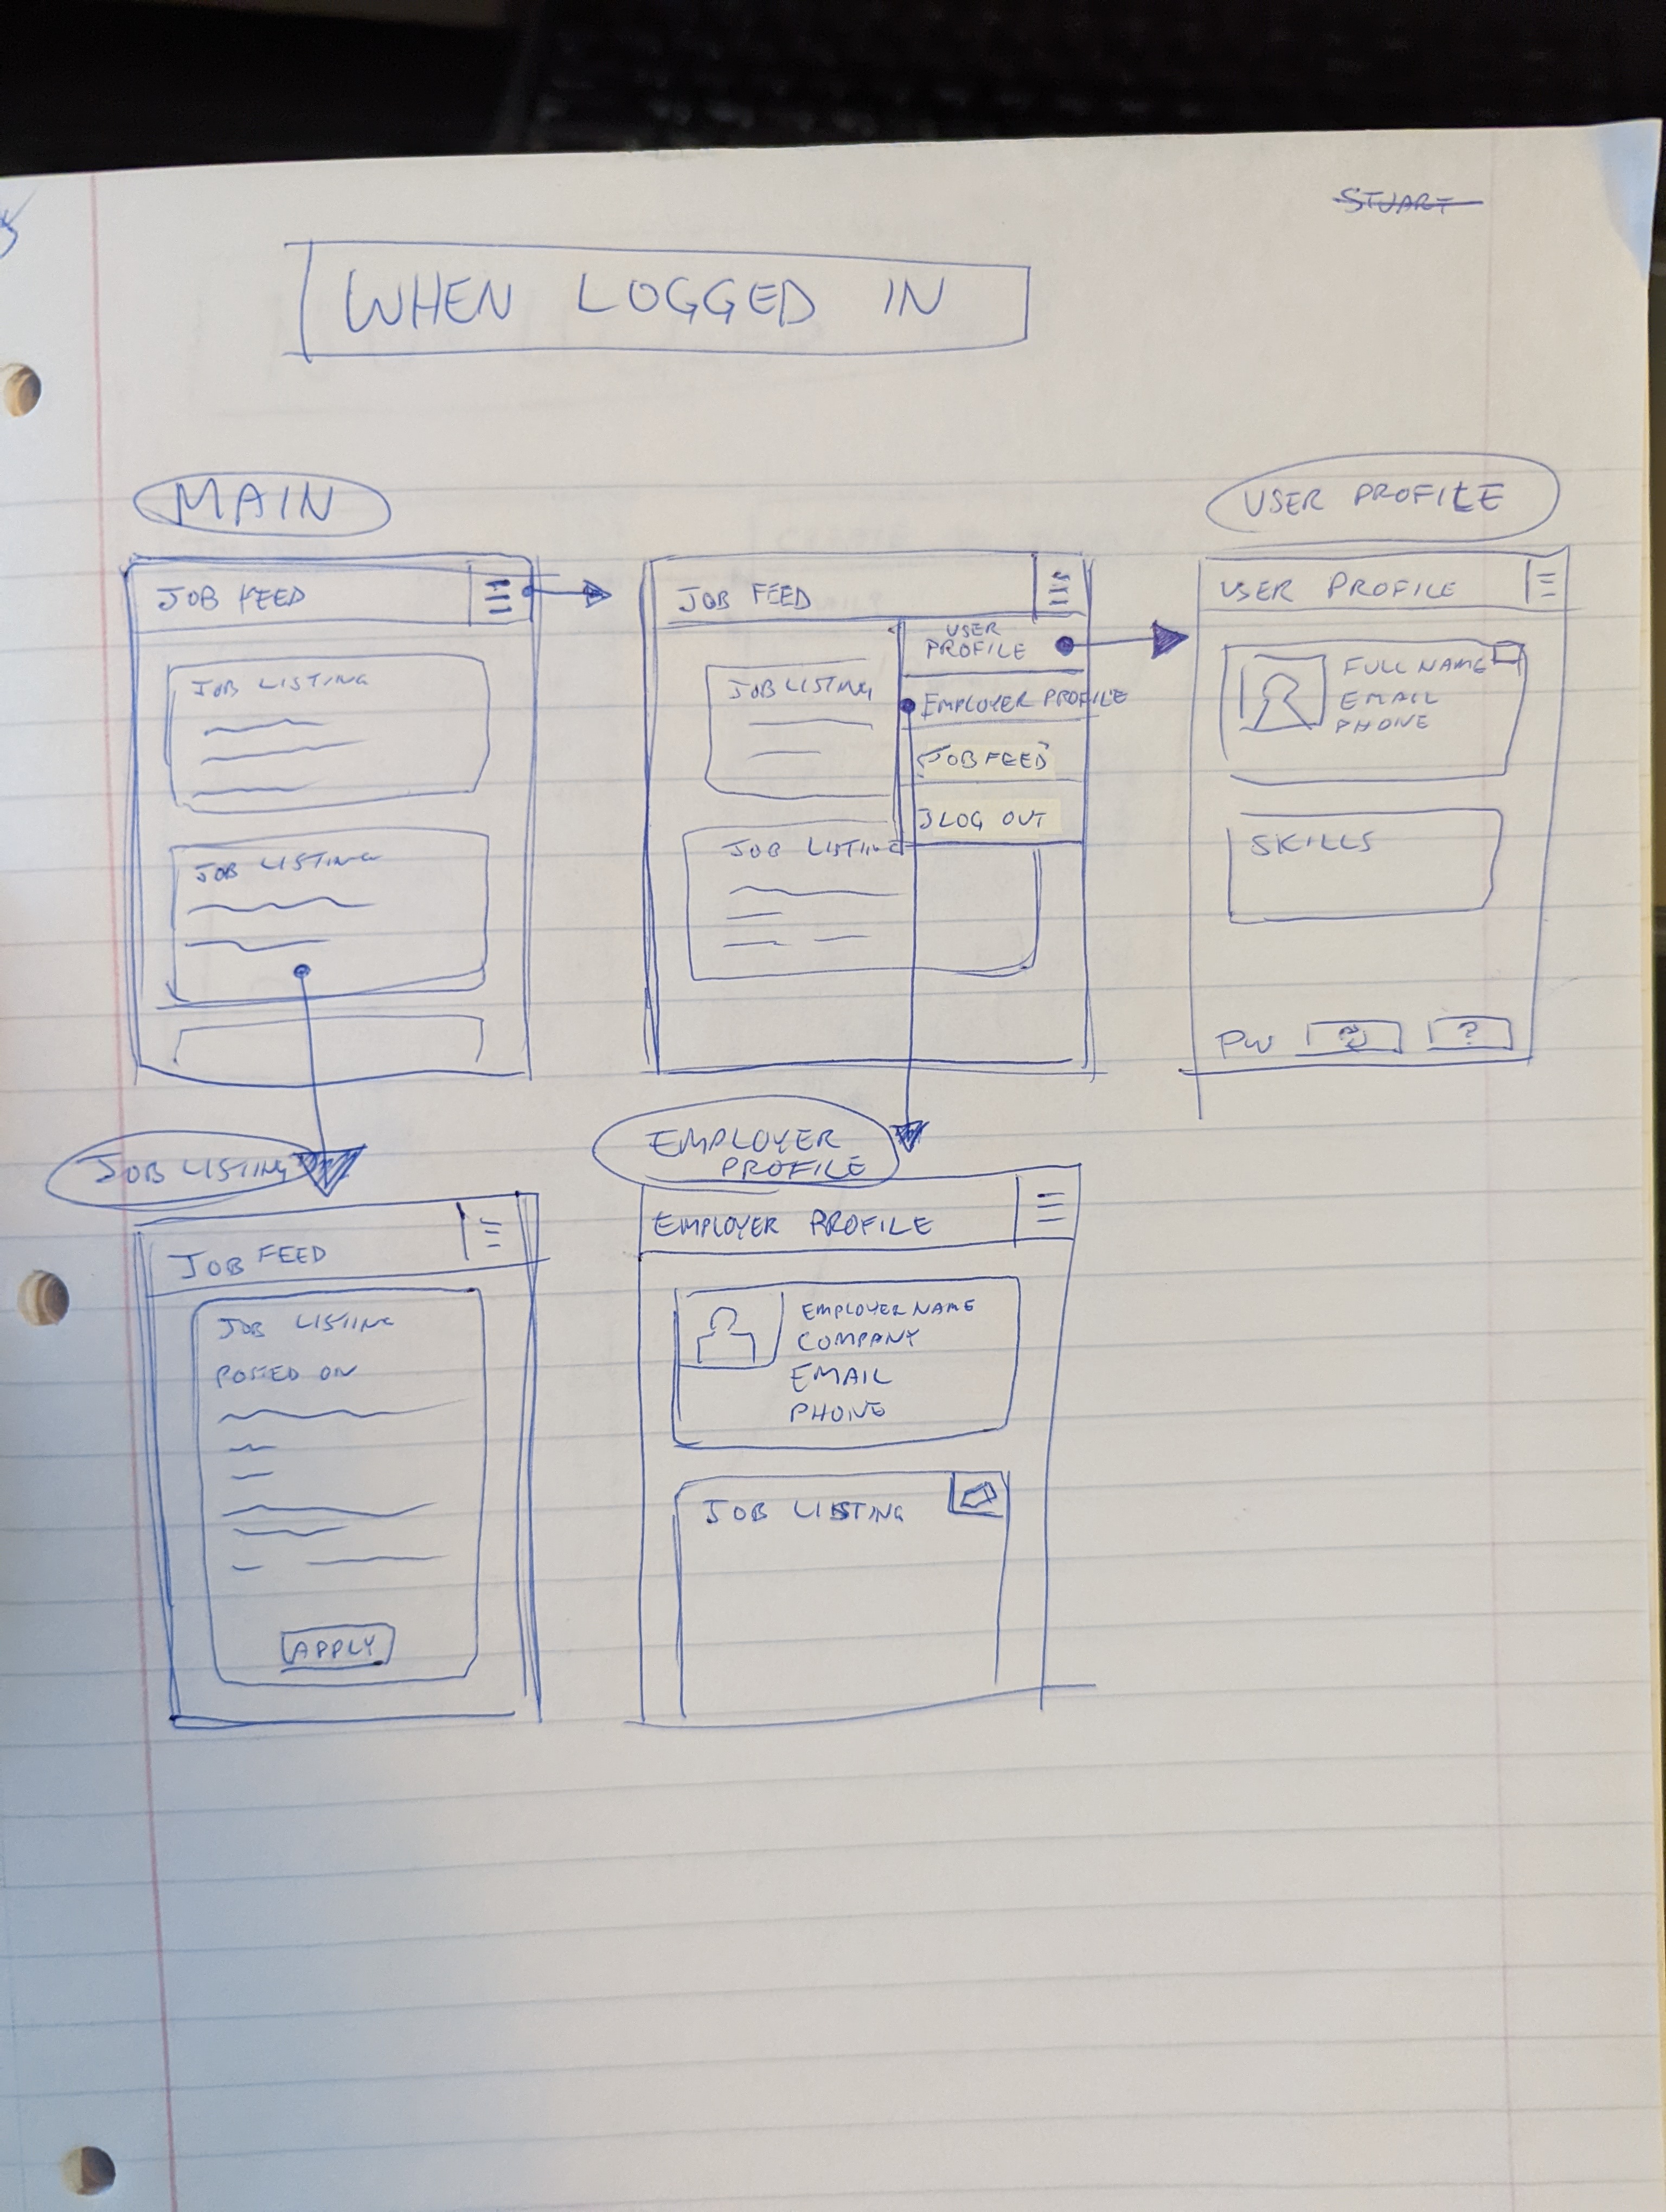 STUART
WHEN LOGGED IN
MAIN
JOB FEED
JOB LISTING
JOB LISTING
JOB FEED
USER
PROFILE
EMPLOYER PROFILE
JOB FEED
LOG OUT
JOB LISTING
JOB LISTING
USER PROFILE
USER PROFILE
FULL NAME
EMAIL
PHONE
SKILLS
PW
?
JOB LISTING
JOB FEED
JOB LISTING
POSTED ON
APPLY
EMPLOYER
PROFILE
EMPLOYER PROFILE
EMPLOYER NAME
COMPANY
EMAIL
PHONE
JOB LISTING